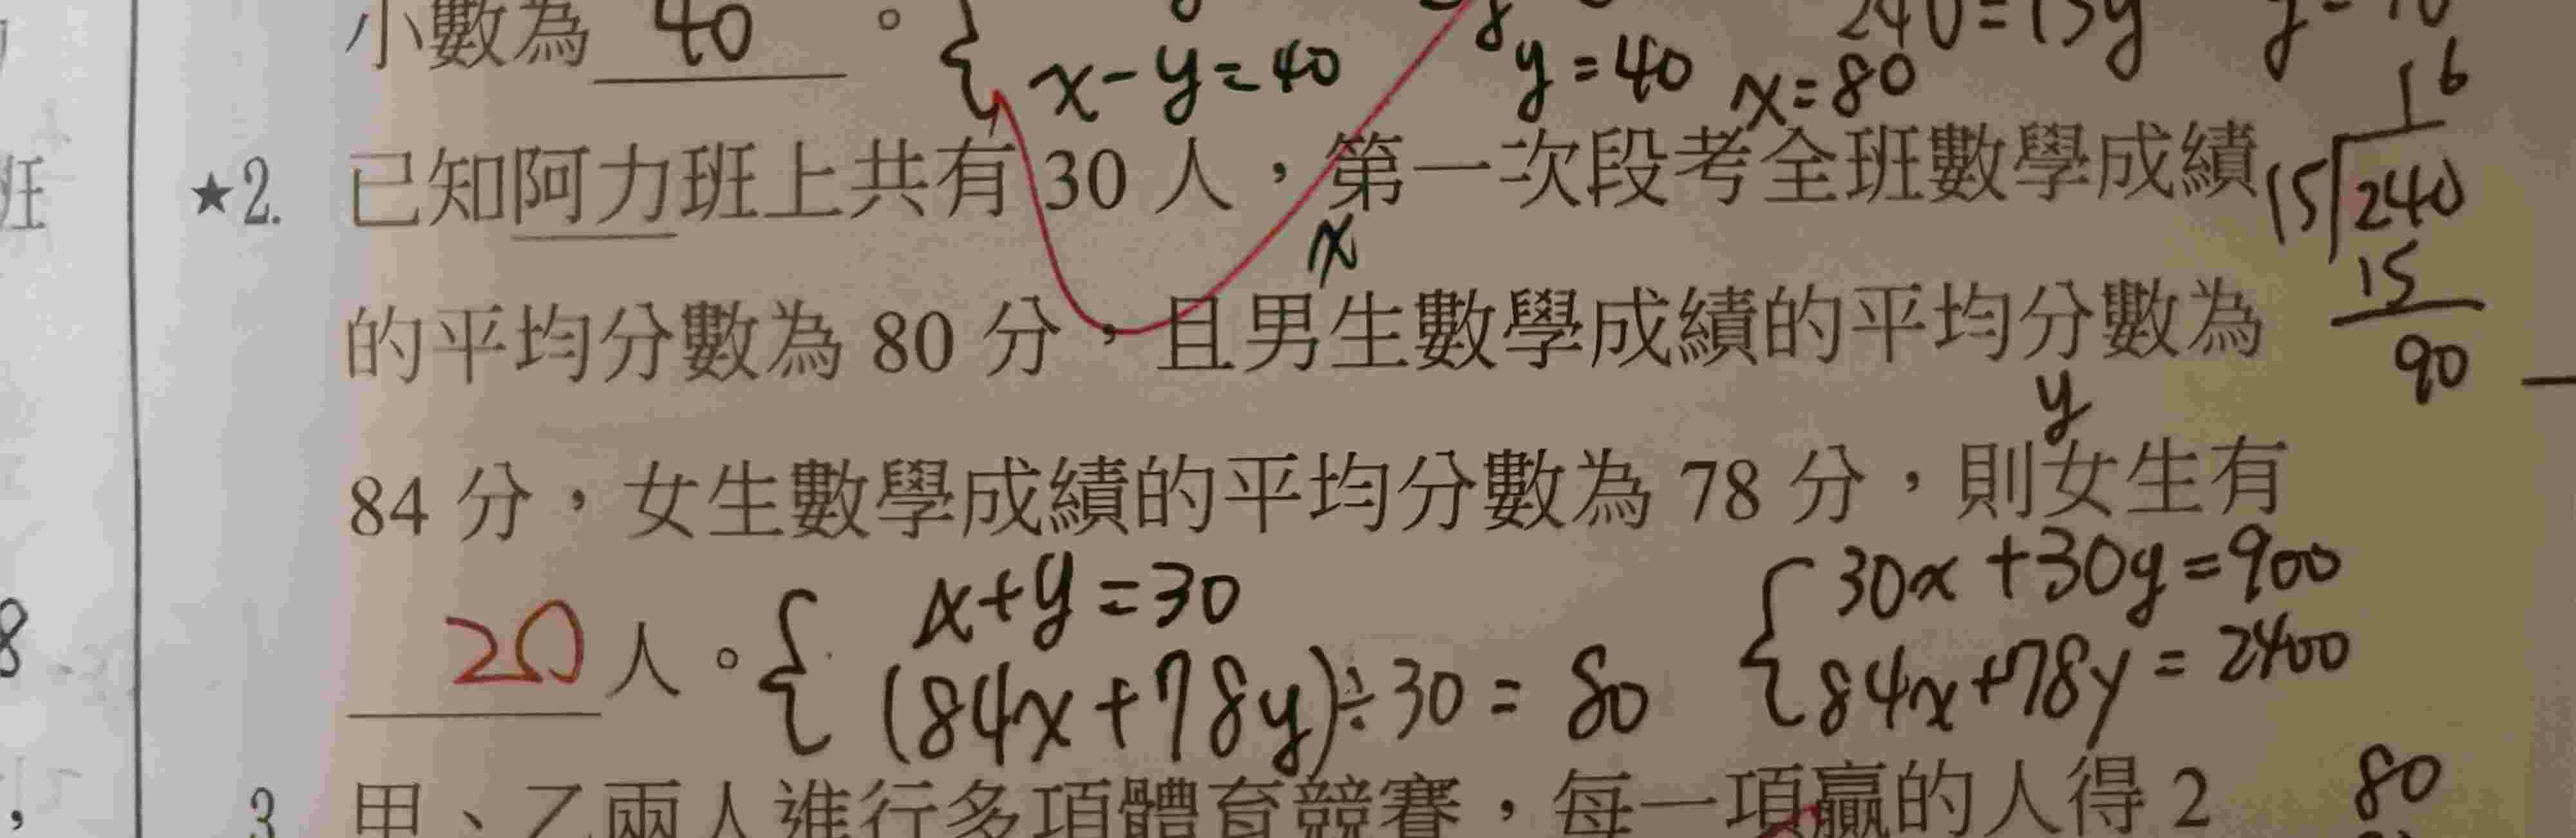 小數為 40 。 { x-y=40 y=40 x=80
240=15y
★2. 已知阿力班上共有 30 人，第一次段考全班數學成績
x
的平均分數為 80 分，且男生數學成績的平均分數為
y
84 分，女生數學成績的平均分數為 78 分，則女生有
20 人。
{ x+y=30
(84x+78y)÷30=80
{ 30x+30y=900
84x+78y=2400
16
15 240
15
90
3 甲、乙兩人進行多項體育競賽，每一項贏的人得 2
80
班
8
，